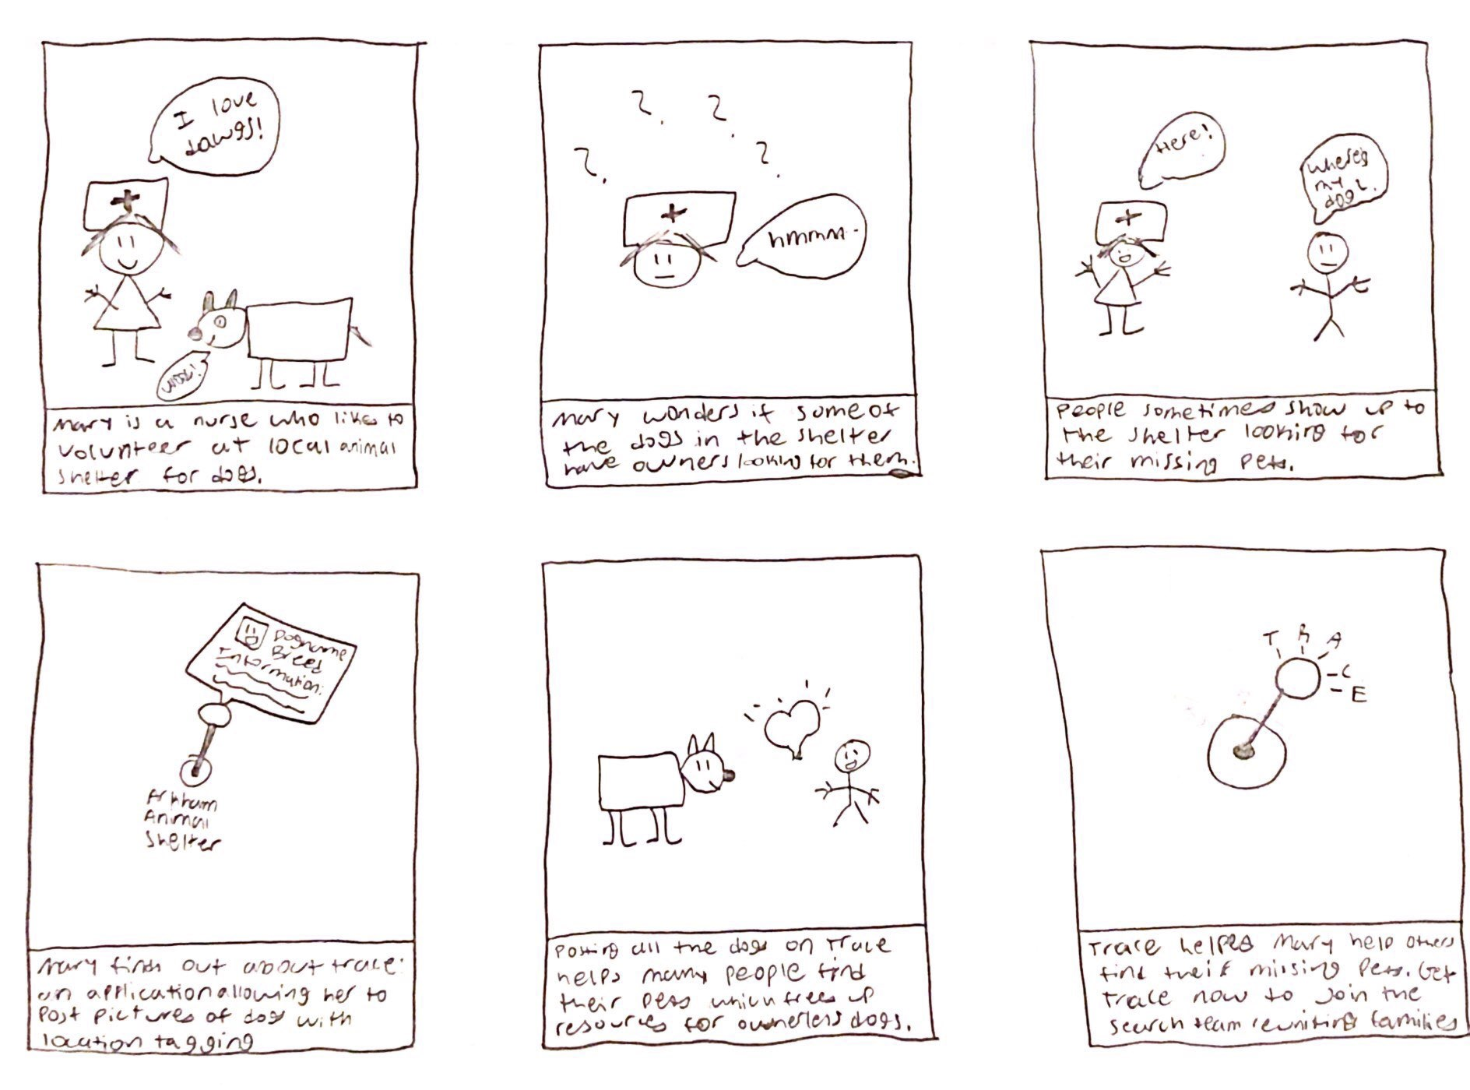 I love
dawgs!
woof!
Mary is a nurse who likes to
volunteer at local animal
shelter for dogs.
? ? ? ?
hmmm..
Mary wonders if some of
the dogs in the shelter
have owners looking for them.
Here!
Where's
my
dog?
People sometimes show up to
the shelter looking for
their missing pets.
Dogname
Breed
Information:
Arkham
Animal
Shelter
Mary finds out about trace:
an application allowing her to
post pictures of dogs with
location tagging
Posting all the dogs on Trace
helps many people find
their pets which frees up
resources for ownerless dogs.
T R A C E
Trace helps Mary help others
find their missing pets. Get
Trace now to join the
search team reuniting families